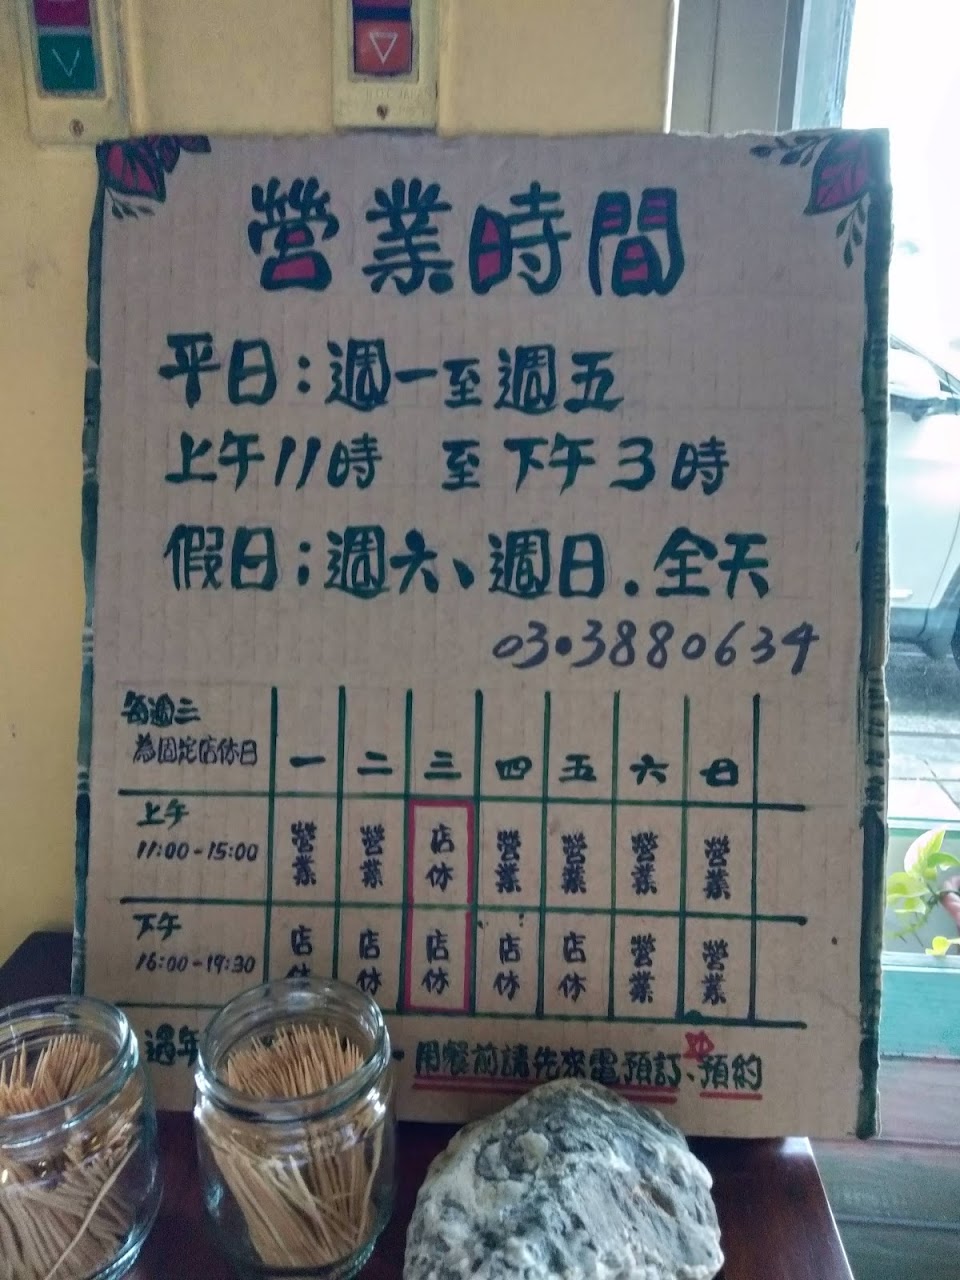 營業時間
平日:週一至週五
上午11時 至下午3時
假日:週六、週日.全天
03.3880634
每週三
為固定店休日 一 二 三 四 五 六 日
上午
11:00-15:00 營業 營業 店休 營業 營業 營業 營業
下午
16:00-19:30 店休 店休 店休 店休 店休 營業 營業
過年 用餐前請先來電預訂、預約